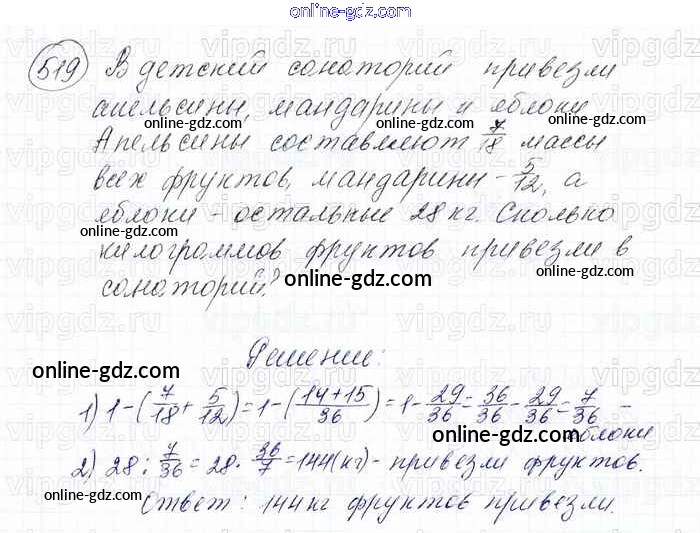 online-gdz.com
519 В детский санаторий привезли
апельсины, мандарины и яблоки
online-gdz.com online-gdz.com
Апельсины составляют 7/18 массы
online-gdz.com
всех фруктов, мандарины - 5/12, а
яблоки - остальные 28 кг. Сколько
online-gdz.com
килограммов фруктов привезли в
online-gdz.com
санаторий?
online-gdz.com
Решение:
online-gdz.com
1) 1-(7/18+5/12)=1-(14+15/36)=1-29/36=36/36-29/36=7/36 -
online-gdz.com яблоки
2) 28:7/36=28·36/7=144(кг)- привезли фруктов.
online-gdz.com
Ответ: 144 кг фруктов привезли.
online-gdz.com